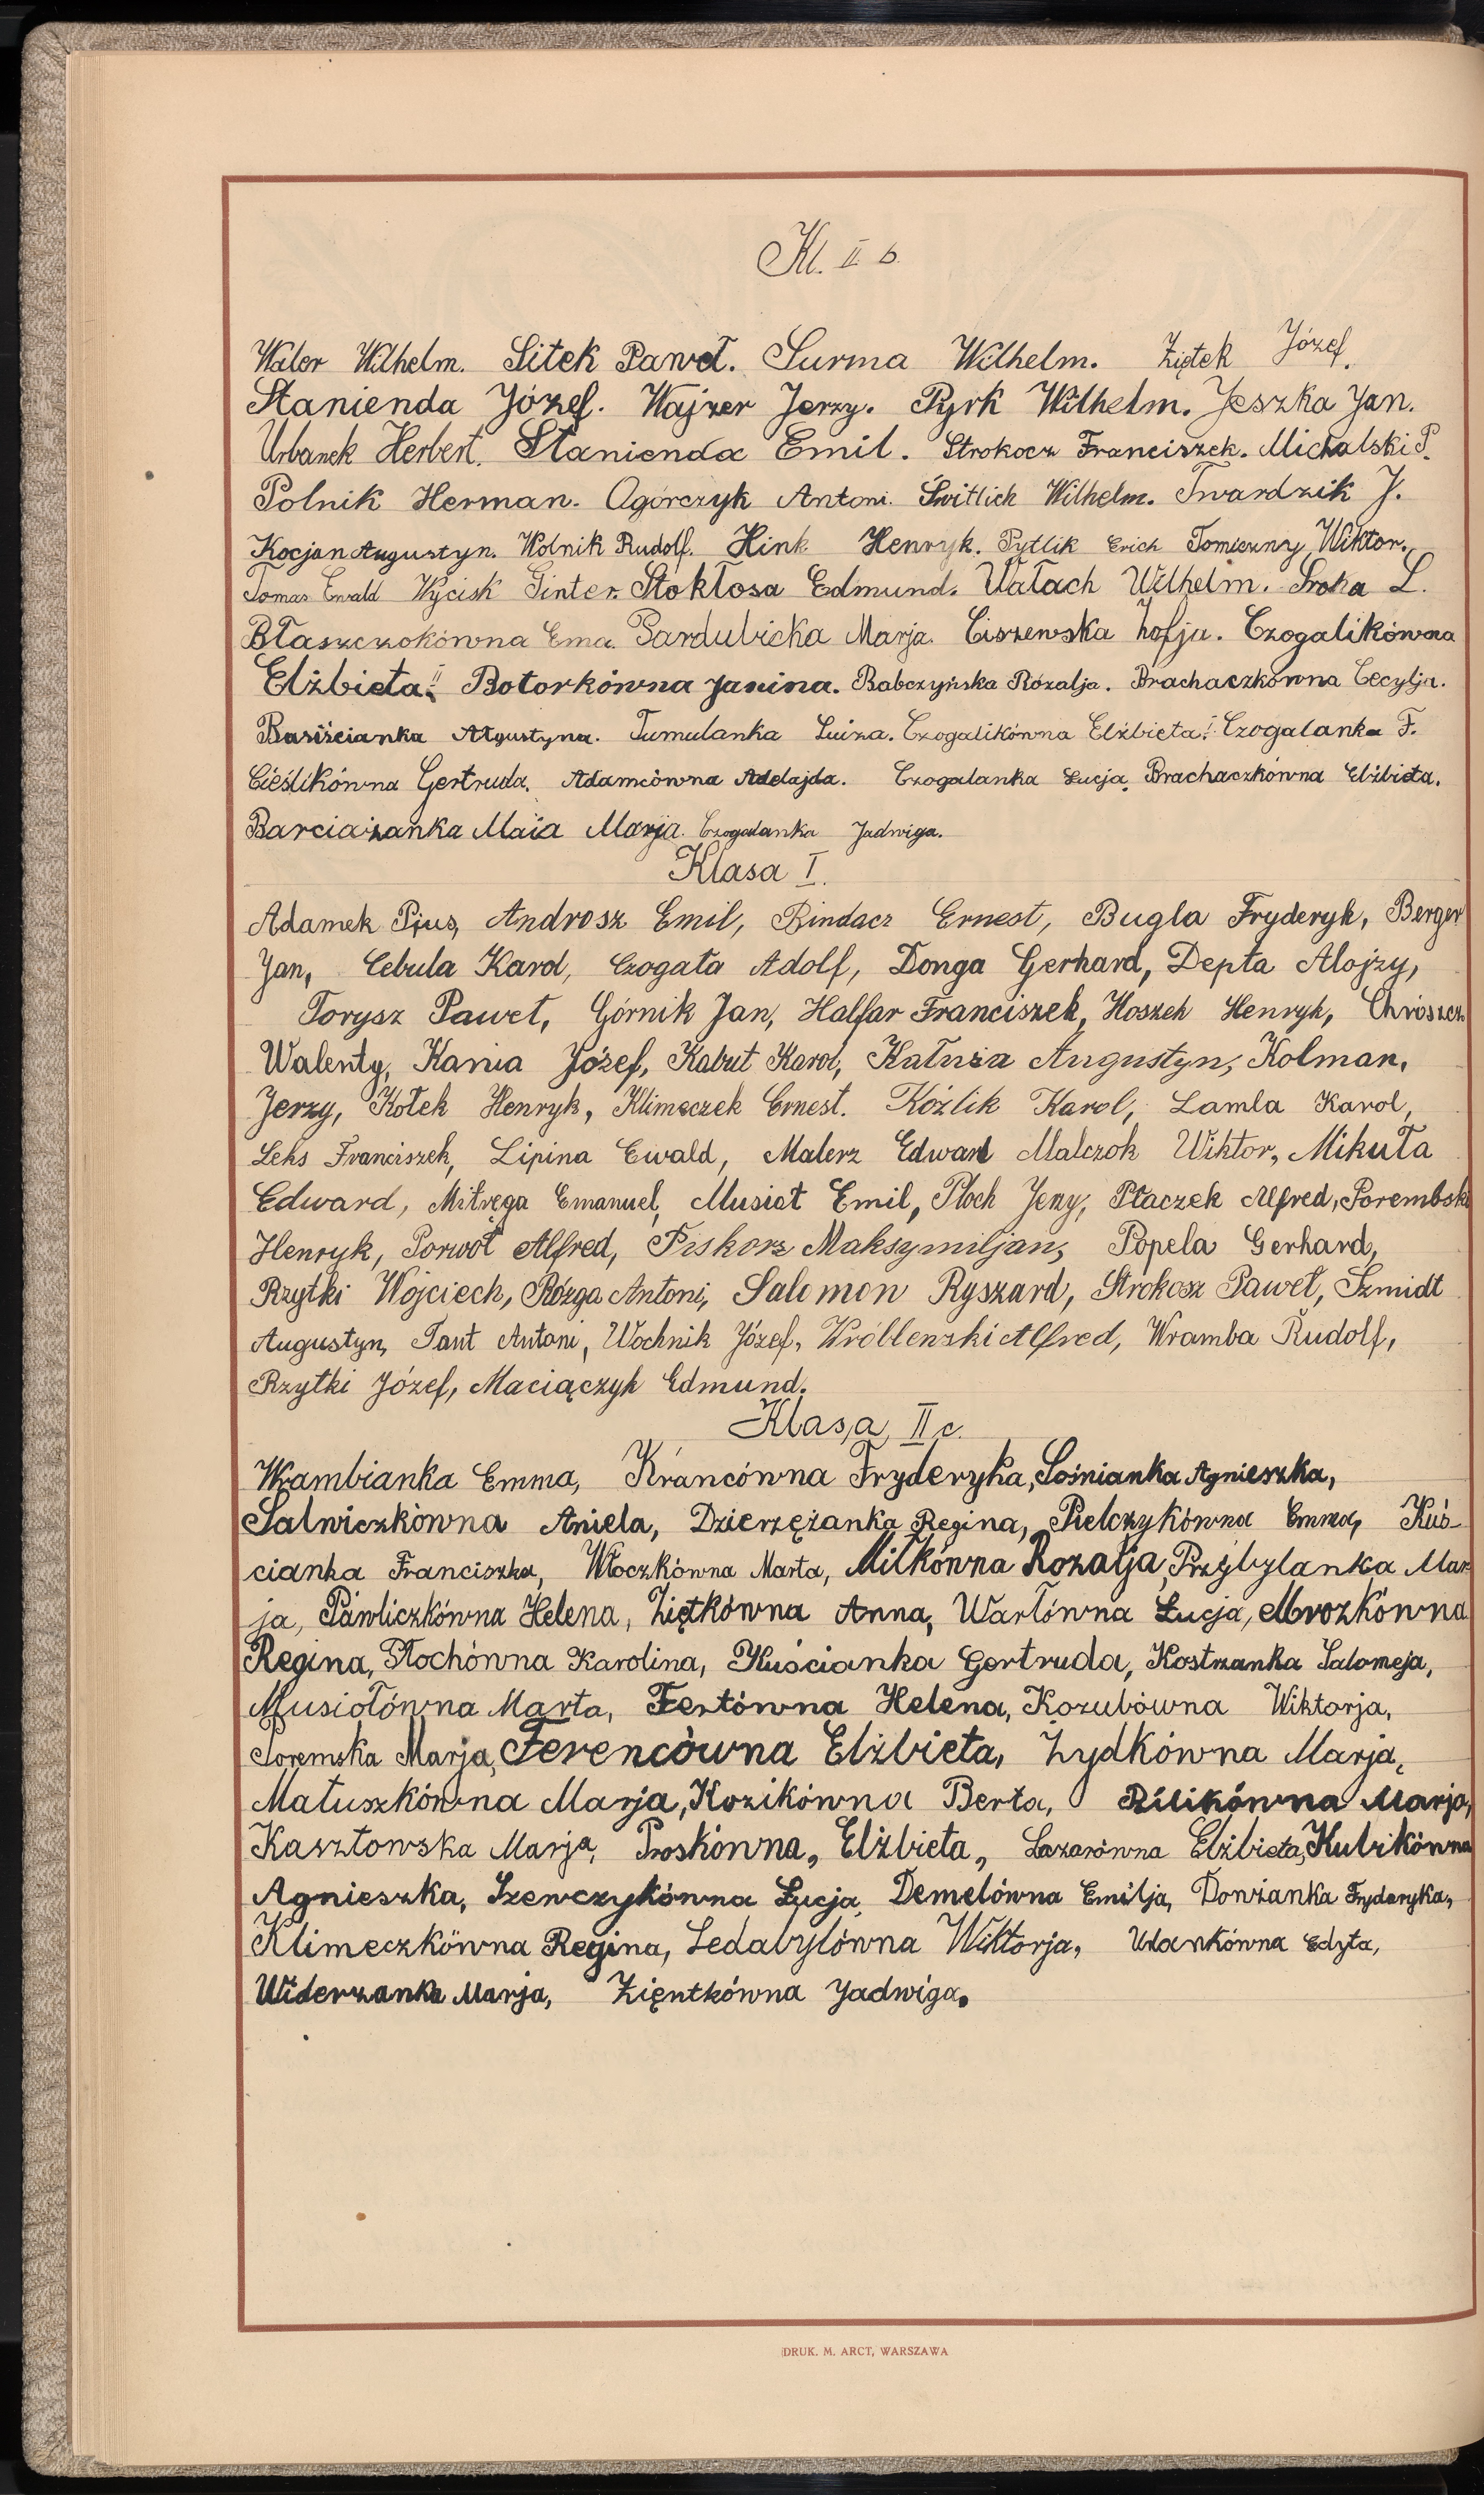 Kl. II b.
Waler Wilhelm. Sitek Paweł. Surma Wilhelm. Ziętek Józef.
Stanienda Józef. Wajzer Jerzy. Pyrk Wilhelm. Jeszka Jan.
Urbanek Herbert. Stanienda Emil. Strokocz Franciszek. Michalski P.
Polnik Herman. Ogórczyk Antoni. Switlich Wilhelm. Twardzik J.
Kocjan Augustyn. Wolnik Rudolf. Hink Henryk. Pytlik Erich Tomiczny Wiktor.
Tomas Ewald Wycisk Ginter. Stokłosa Edmund. Wałach Wilhelm. Sroka L.
Błaszczokówna Ema. Pardubicka Marja. Ciszewska Zofja. Czogalikówna
Elżbieta II. Botorkówna Janina. Babczyńska Rozalja. Brachaczkówna Cecylja.
Basiścianka Agustyna. Tumulanka Luiza. Czogalikówna Elżbieta I. Czogalanka F.
Cieślikówna Gertruda. Adamcówna Adelajda. Czogalanka Łucja. Brachaczkówna Elżbieta.
Barciażanka Maia Marja. Czogalanka Jadwiga.
Klasa I.
Adamek Pius, Androsz Emil, Bindacz Ernest, Bugla Fryderyk, Berger
Jan, Cebula Karol, Czogała Adolf, Donga Gerhard, Depta Alojzy,
Forysz Paweł, Górnik Jan, Halfar Franciszek, Hoszek Henryk, Chrószcz
Walenty, Kania Józef, Kabut Karol, Kałuża Augustyn, Kolman,
Jerzy, Kołek Henryk, Klimeczek Ernest. Kóźlik Karol, Lamla Karol,
Leks Franciszek, Lipina Ewald, Malerz Edward Malczok Wiktor, Mikuła
Edward, Mitręga Emanuel, Musioł Emil, Płoch Jerzy, Płaczek Alfred, Porembski
Henryk, Porwoł Alfred, Piskorz Maksymiljan, Popela Gerhard,
Rzytki Wojciech, Rózga Antoni, Salomon Ryszard, Strokosz Paweł, Szmidt
Augustyn, Taut Antoni, Wochnik Józef, Wróblenski Alfred, Wramba Rudolf,
Rzytki Józef, Maciączyk Edmund.
Klasa II c.
Wrambianka Emma, Krancówna Fryderyka, Sośnianka Agnieszka,
Salwiczkówna Aniela, Dzierzężanka Regina, Pielczykówna Emma, Kuś-
cianka Franciszka, Włoczkówna Marta, Milkówna Rozalja, Przybylanka Mar
ja, Pawliczkówna Helena, Ziętkówna Anna, Warłówna Łucja, Mrozkówna
Regina, Płochówna Karolina, Kuścianka Gertruda, Kostrzanka Salomeja,
Musiołówna Marta, Fertówna Helena, Kozubówna Wiktorja,
Poremska Marja, Ferencówna Elżbieta, Żydkówna Marja,
Matuszkówna Marja, Kozikówna Berta, Bilikówna Marja,
Kasztowska Marja, Proskówna, Elżbieta, Lazarówna Elżbieta, Kubikówna
Agnieszka, Szewczykówna Łucja, Demelówna Emilja, Donżanka Fryderyka,
Klimeczkówna Regina, Ledabylówna Wiktorja, Ulankówna Edyta,
Widerzanka Marja, Zięntkówna Jadwiga.
DRUK. M. ARCT, WARSZAWA